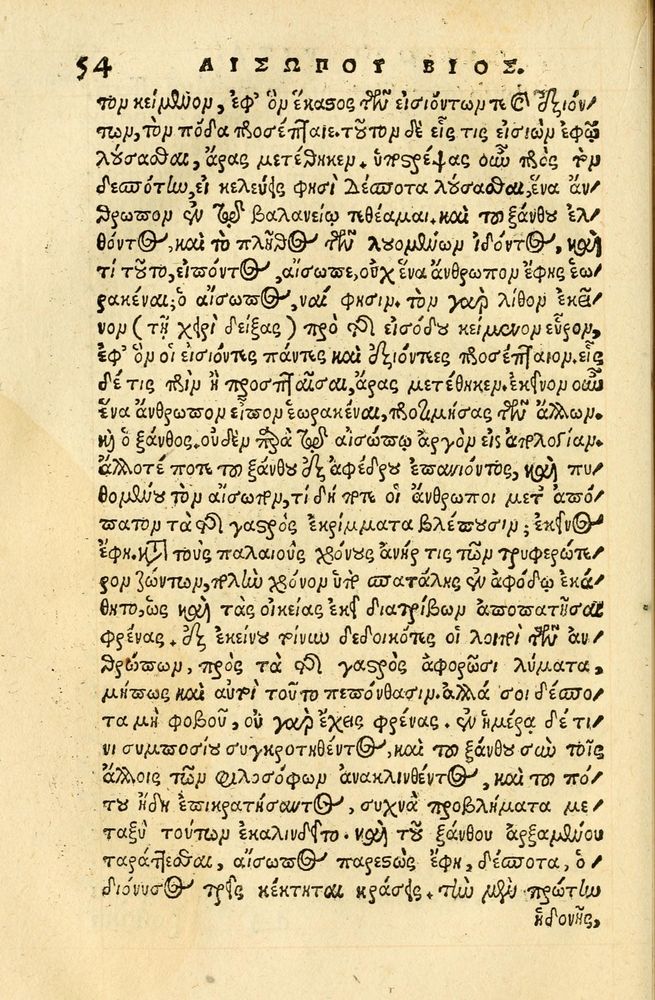 54 ΑΙΣΩΠΟΥ ΒΙΟΣ.
τον κείμενον, ἐφ' ὃν ἕκαστος τῶν εἰσιόντων τε καὶ ἐξιόν-
των, τὸν πόδα προσέπταιε. τοῦτον δὲ εἷς τις εἰσιὼν ἐφ' ᾧ
λούσασθαι, ἄρας μετέθηκεν. ὑποστρέψας οὖν πρὸς τὸν
δεσπότην, εἰ κελεύεις φησὶ δέσποτα λούσασθαι, ἕνα ἄν-
θρωπον ἐν τῷ βαλανείῳ τεθέαμαι. καὶ τοῦ ξάνθου ἐλ-
θόντος, καὶ τὸ πλῆθος τῶν λουομένων ἰδόντος, καὶ
τί τοῦτο, εἰπόντος, αἴσωπε, οὐχ ἕνα ἄνθρωπον ἔφης ἑω-
ρακέναι; ὁ αἴσωπος, ναί φησιν. τὸν γὰρ λίθον ἐκεῖ-
νον (τῇ χειρὶ δείξας) πρὸ τῆς εἰσόδου κείμενον εὗρον,
ἐφ' ὃν οἱ εἰσιόντες πάντες καὶ ἐξιόντες προσέπταιον. εἷς
δέ τις πρὶν ἢ προσπταῖσαι, ἄρας μετέθηκεν. ἐκεῖνον οὖν
ἕνα ἄνθρωπον εἶπον ἑωρακέναι, προτιμήσας τῶν ἄλλων.
καὶ ὁ ξάνθος. οὐδὲν παρὰ τῷ αἰσώπῳ ἀργὸν εἰς ἀπολογίαν.
ἄλλοτέ ποτε τοῦ ξάνθου ἐξ ἀφέδρου ἐπανιόντος, καὶ πυ-
θομένου τὸν αἴσωπον, τί δήποτε οἱ ἄνθρωποι μετ' ἀπό-
πατον τὰ τῆς γαστρὸς ἐκκρίμματα βλέπουσιν; ἐκεῖνος
ἔφη. κατὰ τοὺς παλαιοὺς χρόνους ἀνήρ τις τῶν τρυφερώτε-
ρον ζώντων, πολὺν χρόνον ὑπὸ σπατάλης ἐν ἀφόδῳ ἐκά-
θητο, ὡς καὶ τὰς οἰκείας ἐκεῖ διατρίβων ἀποπατῆσαι
φρένας. ἐξ ἐκείνου τοίνυν δεδοικότες οἱ λοιποὶ τῶν ἀν-
θρώπων, πρὸς τὰ τῆς γαστρὸς ἀφορῶσι λύματα,
μήπως καὶ αὐτοὶ τοῦτο πεπόνθασιν. ἀλλά σοι δέσπο-
τα μὴ φοβοῦ, οὐ γὰρ ἔχεις φρένας. ἐν ἡμέρᾳ δέ τι-
νι συμποσίου συγκροτηθέντος, καὶ τοῦ ξάνθου σὺν τοῖς
ἄλλοις τῶν φιλοσόφων ἀνακλινθέντος, καὶ τοῦ πό-
του ἤδη ἐπικρατήσαντος, συχνὰ προβλήματα με-
ταξὺ τούτων ἐκαλινδεῖτο. καὶ τοῦ ξάνθου ἀρξαμένου
ταράττεσθαι, αἴσωπος παρεστὼς ἔφη, δέσποτα, ὁ
διόνυσος τρεῖς κέκτηται κράσεις. τὴν μὲν πρώτην
ἡδονῆς,